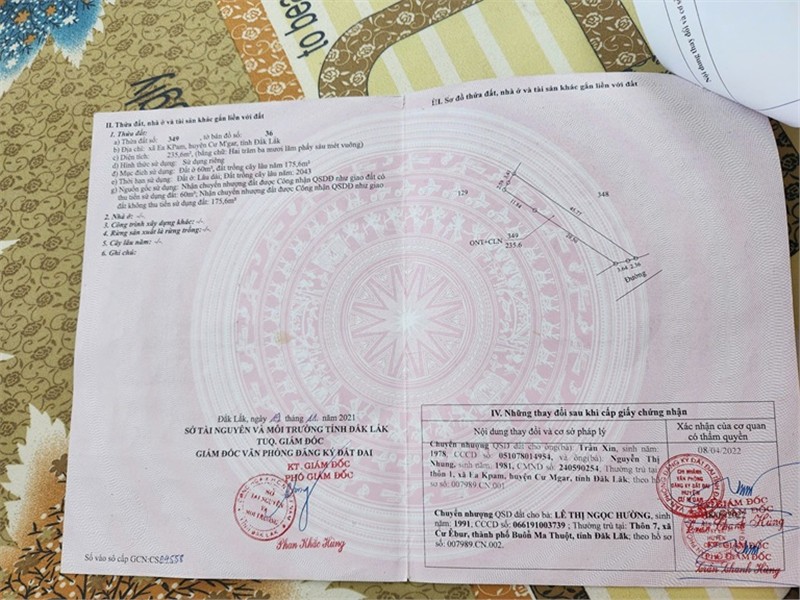 to bea
Nội dung thay đổi và cơ sở
II. Thửa đất, nhà ở và tài sản khác gắn liền với đất
1. Thửa đất:
a) Thửa đất số: 349 , tờ bản đồ số: 36
b) Địa chỉ: xã Ea KPam, huyện Cư M'gar, tỉnh Đắk Lắk
c) Diện tích: 235,6m², (bằng chữ: Hai trăm ba mươi lăm phẩy sáu mét vuông)
d) Hình thức sử dụng: Sử dụng riêng
đ) Mục đích sử dụng: Đất ở 60m², đất trồng cây lâu năm 175,6m²
e) Thời hạn sử dụng: Đất ở: Lâu dài; Đất trồng cây lâu năm: 2043
g) Nguồn gốc sử dụng: Nhận chuyển nhượng đất được Công nhận QSDĐ như giao đất có
thu tiền sử dụng đất: 60m²; Nhận chuyển nhượng đất được Công nhận QSDĐ như giao
đất không thu tiền sử dụng đất: 175,6m²
2. Nhà ở: -/-
3. Công trình xây dựng khác: -/-
4. Rừng sản xuất là rừng trồng: -/-
5. Cây lâu năm: -/-
6. Ghi chú:
Đắk Lắk, ngày tháng năm 2021
SỞ TÀI NGUYÊN VÀ MÔI TRƯỜNG TỈNH ĐẮK LẮK
TUQ. GIÁM ĐỐC
GIÁM ĐỐC VĂN PHÒNG ĐĂNG KÝ ĐẤT ĐAI
KT. GIÁM ĐỐC
PHÓ GIÁM ĐỐC
SỞ
TÀI NGUYÊN
VÀ
MÔI TRƯỜNG
Phan Khắc Hùng
Số vào sổ cấp GCN: CS
III. Sơ đồ thửa đất, nhà ở và tài sản khác gắn liền với đất
129
348
11.84
45.77
349
ONT+CLN
235.6
3.64 2.36
Đường
IV. Những thay đổi sau khi cấp giấy chứng nhận
Nội dung thay đổi và cơ sở pháp lý
Xác nhận của cơ quan
có thẩm quyền
Chuyển nhượng QSD đất cho ông(bà) Trần Xin, sinh năm:
1978, CCCD số: 051078014954, và ông(bà): Nguyễn Thị
Nhung, sinh năm: 1981, CMND số: 240590254, Thường trú tại
thôn 1, xã Ea Kpam, huyện Cư Mgar, tỉnh Đắk Lắk; theo hồ sơ
số: 007989.CN.001.
08/04/2022
CHI NHÁNH
VĂN PHÒNG
ĐĂNG KÝ ĐẤT ĐAI
HUYỆN
CƯ M'GAR
GIÁM ĐỐC
Trần Thanh Hùng
Chuyển nhượng QSD đất cho bà: LÊ THỊ NGỌC HƯỜNG, sinh
năm: 1991, CCCD số: 066191003739 ; Thường trú tại: Thôn 7, xã
Cư Êbur, thành phố Buôn Ma Thuột, tỉnh Đắk Lắk; theo hồ sơ
số: 007989.CN.002.
GIÁM ĐỐC
PHÓ GIÁM ĐỐC
Trần Thanh Hùng